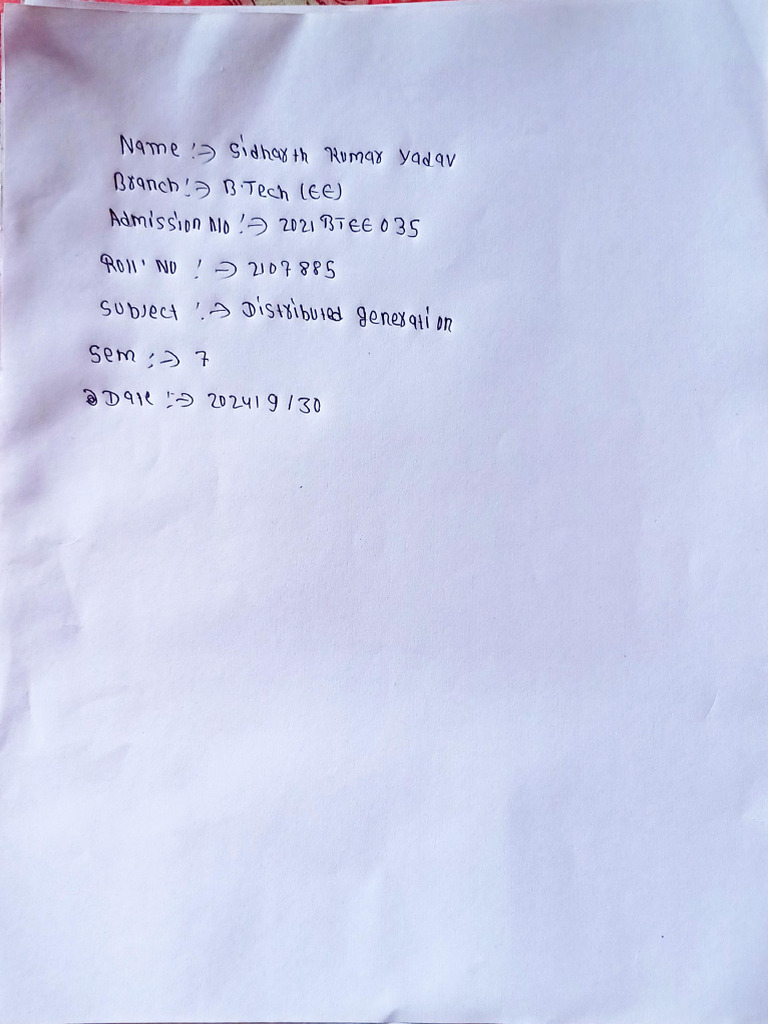 Name :-> Sidharth Kumar Yadav
Branch :-> B.Tech (EE)
Admission No :-> 2021BTEE035
Roll No :-> 2107885
Subject :-> Distributed generation
Sem :-> 7
Date :-> 2024/9/30